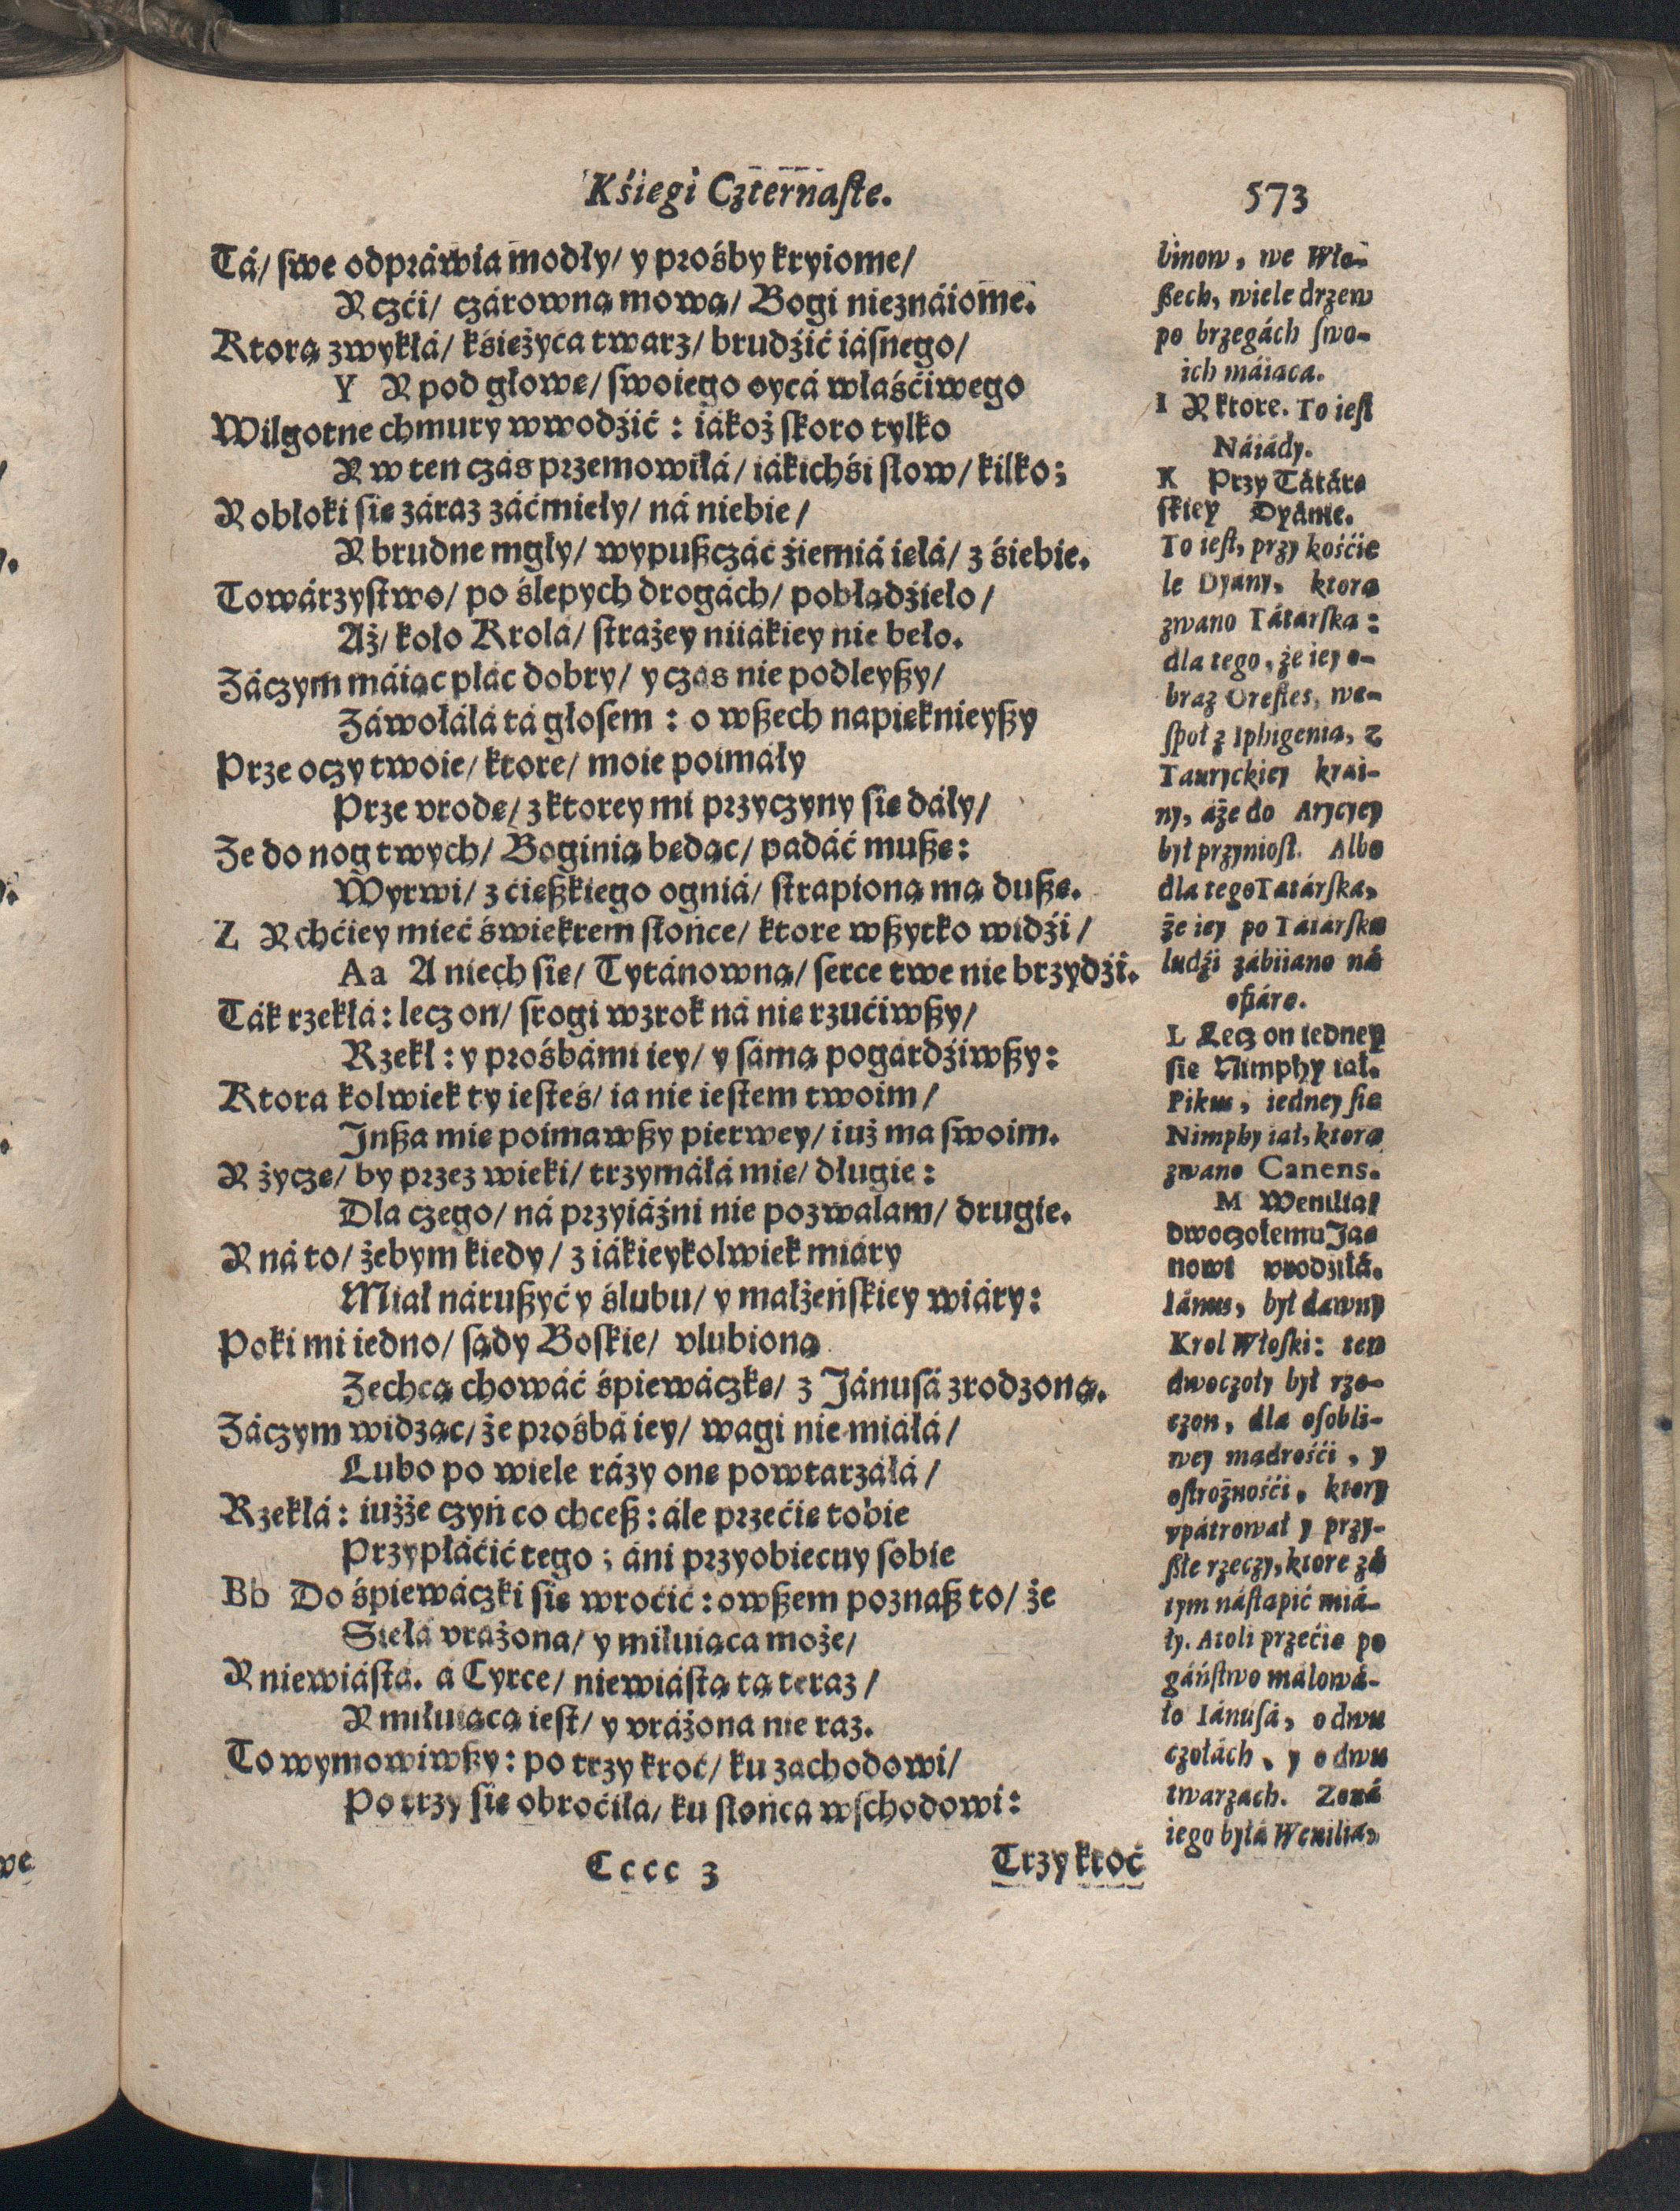 Kśięgi Czternaſte.
573
Tá/ ſwe odpráwia modły/ y prośby kryiome/
Y czći/ czárowną mową/ Bogi nieznáiome.
Ktorą zwykłá/ kśiężyca twarz/ brudźić iáſnego/
Y Y pod głowę/ ſwoiego oycá właśćiwego
Wilgotne chmury wwodźić : iákoż ſkoro tylko
Y w ten czás przemowiłá/ iákichśi ſłow/ kilko;
Y obłoki ſię záraz záćmieły/ ná niebie/
Y brudne mgły/ wypußczáć źiemiá ięłá/ z śiebie.
Towárzyſtwo/ po ślepych drogách/ pobłądźieło/
Aż/ koło Krolá/ ſtrażey niiákiey nie beło.
Záczym máiąc plác dobry/ y czás nie podleyßy/
Záwołáłá tá głoſem : o wßech napięknieyßy
Prze oczy twoie/ ktore/ moie poimáły
Prze vrodę/ z ktorey mi przyczyny ſię dáły/
Że do nog twych/ Boginią będąc/ padáć mußę:
Wyrwi/ z ćięßkiego ogniá/ ſtrapioną mą dußę.
Z Y chćiey mieć świekrem ſłońce/ ktore wßytko widźi/
Aa A niech ſię/ Tytánowną/ ſerce twe nie brzydźi.
Ták rzekłá: lecz on/ ſrogi wzrok ná nię rzućiwßy/
Rzekł : y prośbámi iey/ y ſámą pogárdźiwßy:
Ktora kolwiek ty ieſteś/ ia nie ieſtem twoim/
Inßa mię poimawßy pierwey/ iuż ma ſwoim.
Y życzę/ by przez wieki/ trzymáłá mię/ długie :
Dla czego/ ná przyiáźni nie pozwalam/ drugie.
Y ná to/ żebym kiedy/ z iákieykolwiek miáry
Miał nárußyć y ślubu/ y małżeńſkiey wiáry:
Poki mi iedno/ ſądy Boſkie/ vlubioną
Zechcą chowáć śpiewáczkę/ z Jánuſá zrodzoną.
Záczym widząc/ że prośbá iey/ wagi nie miáłá/
Lubo po wiele rázy onę powtarzáłá/
Rzekłá : iużże czyń co chceß : ále przećię tobie
Przypłáćić tego ; áni przyobiecuy ſobie
Bb Do śpiewáczki ſię wroćić : owßem poznaß to/ że
Siełá vrażona/ y miłuiąca może/
Y niewiáſtá. á Cyrce/ niewiáſtą tą teraz/
Y miłuiącą ieſt/ y vráżoną nie raz.
To wymowiwßy: po trzy kroć/ ku zachodowi/
Po trzy ſię obroćiłá/ ku ſłońca wſchodowi:
Cccc 3
Trzy kroć
binow, we Wło-
ßech, wiele drzew
po brzegách ſwo-
ich máiąca.
I Y ktore. To ieſt
Náiády.
K Przy Tátár-
ſkiey Dyánie.
To ieſt, przy kośćie
le Dyány, ktorą
zwano Tátarſką :
dla tego, że iey o-
braz Oreſtes, we-
ſpoł z Iphigenią, z
Tauryckiey krai-
ny, áże do Arycyey
był przyniosł. Albo
dla tego Tatárſka,
że iey po Tatárſku
ludźi zábiiano ná
ofiárę.
L Lecz on iedney
ſię Nimphy iął.
Pikus, iedney ſię
Nimphy iął, ktorą
zwano Canens.
M Wenilia/
dwoczołemu Ja-
nowi vrodźiłá.
Iánus, był dawny
Krol Włoſki: ten
dwoczoły był rze-
czon, dla oſobli-
wey mądrośći, y
oſtrożnośći, ktory
vpátrował y przy-
ßłe rzeczy, ktore zá
tym náſtąpić miá-
ły. Atoli przećię po
gáńſtwo malowá-
ło Iánuſá, o dwu
czołách, y o dwu
twarzach. Żoná
iego byłá Wenilia,